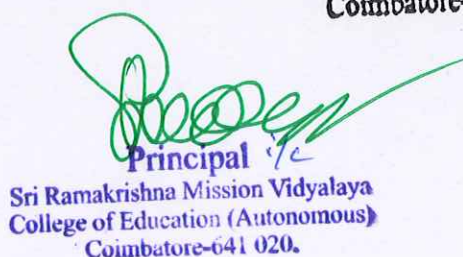 Coimbatore-
Principal i/c
Sri Ramakrishna Mission Vidyalaya
College of Education (Autonomous)
Coimbatore-641 020.